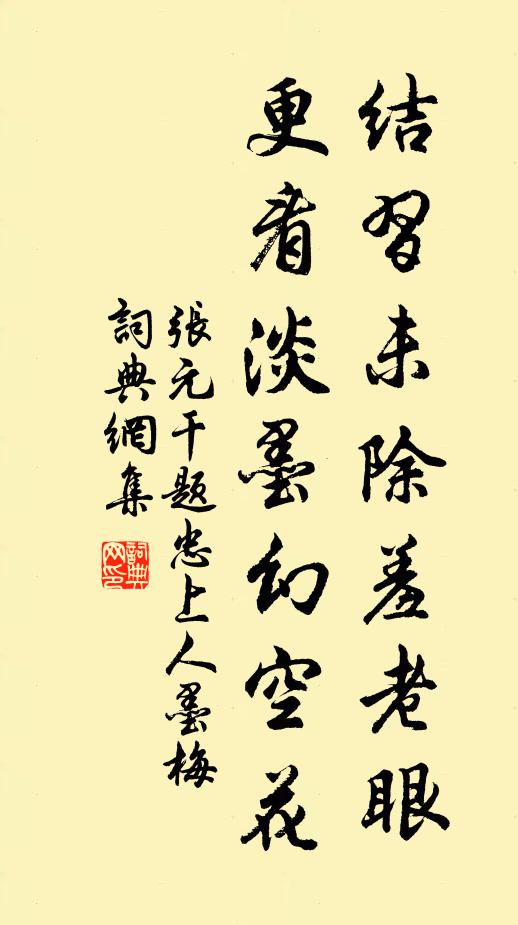 结習未除羞老眼
更看淡墨幻空花
張元干题忠上人墨梅
詞典網集
詞典網印